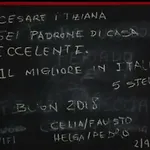 CESARE E TIZIANA
SEI PADRONE DI CASA
ECCELENTI.
IL MIGLIORE IN ITALIA
5 STELLE
BUON 2018
CELIA/FAUSTO
HELGA/PEDRO